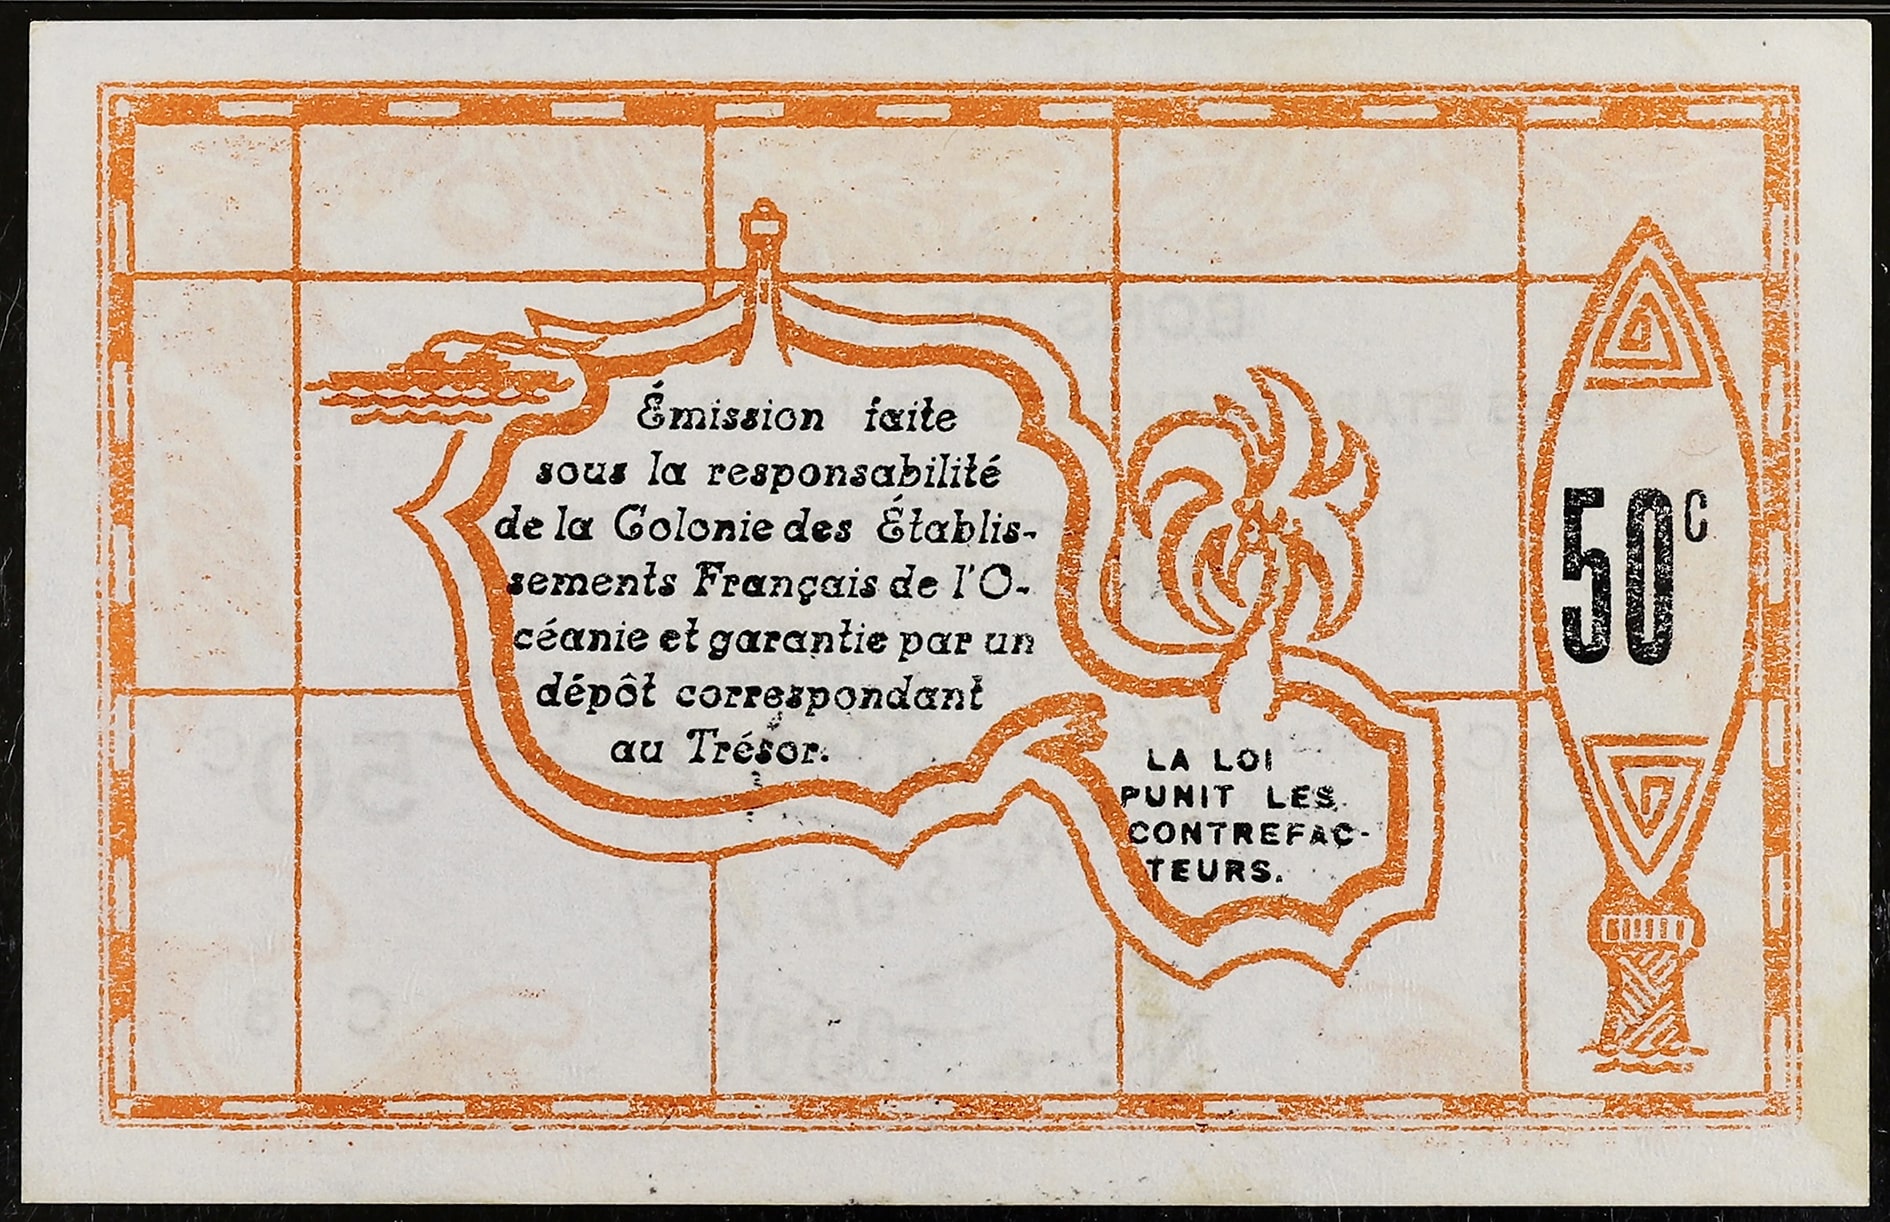 Émission faite
sous la responsabilité
de la Colonie des Établis-
sements Français de l'O-
céanie et garantie par un
dépôt correspondant
au Trésor.
LA LOI
PUNIT LES
CONTREFAC-
TEURS.
50c